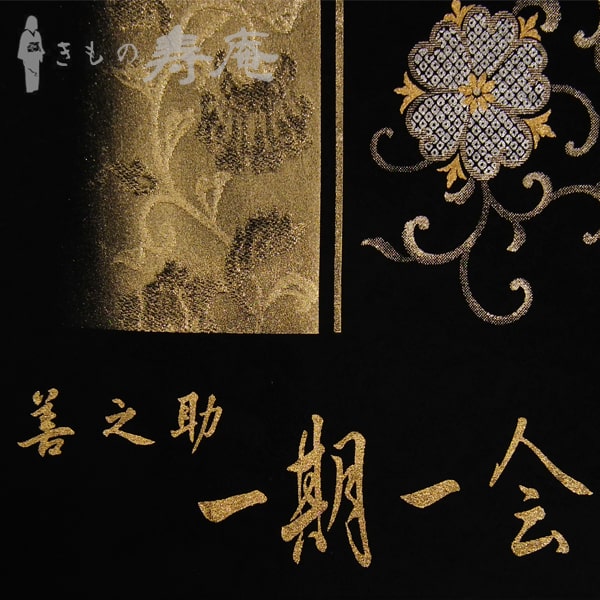 きもの 寿庵
善之助
一期一会